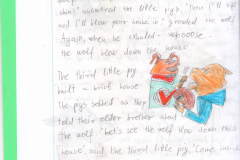 chin" answered the little pig. "Then I'll huff
and I'll blow your house in" growled the wolf
Again, when he exhaled-
the wolf blew down the house
The third little pig
built a brick house.
The pigs
told their elder brother about
the wolf "let's see the wolf blow down this
house", said the third little pig. "Come